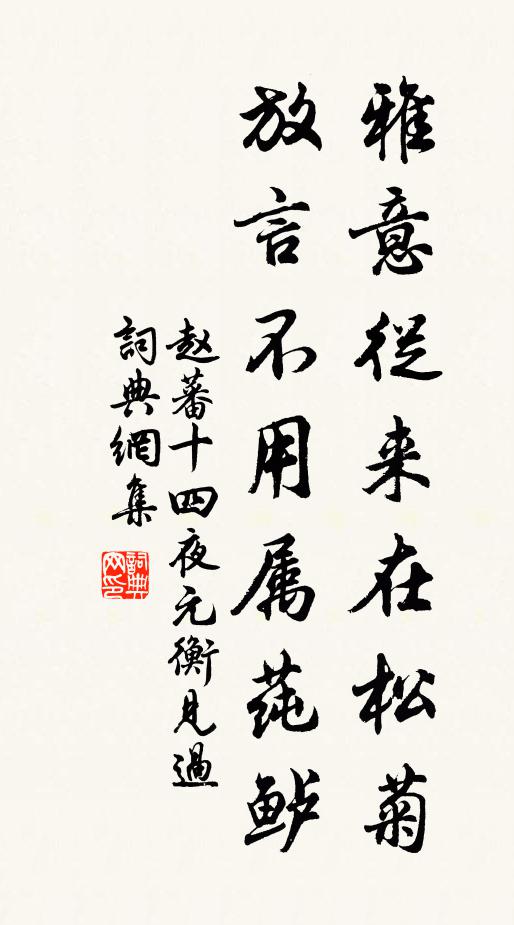 雅意從来在松菊
放言不用属莼鲈
赵蕃十四夜元衡見過
詞典網集
詞典网印